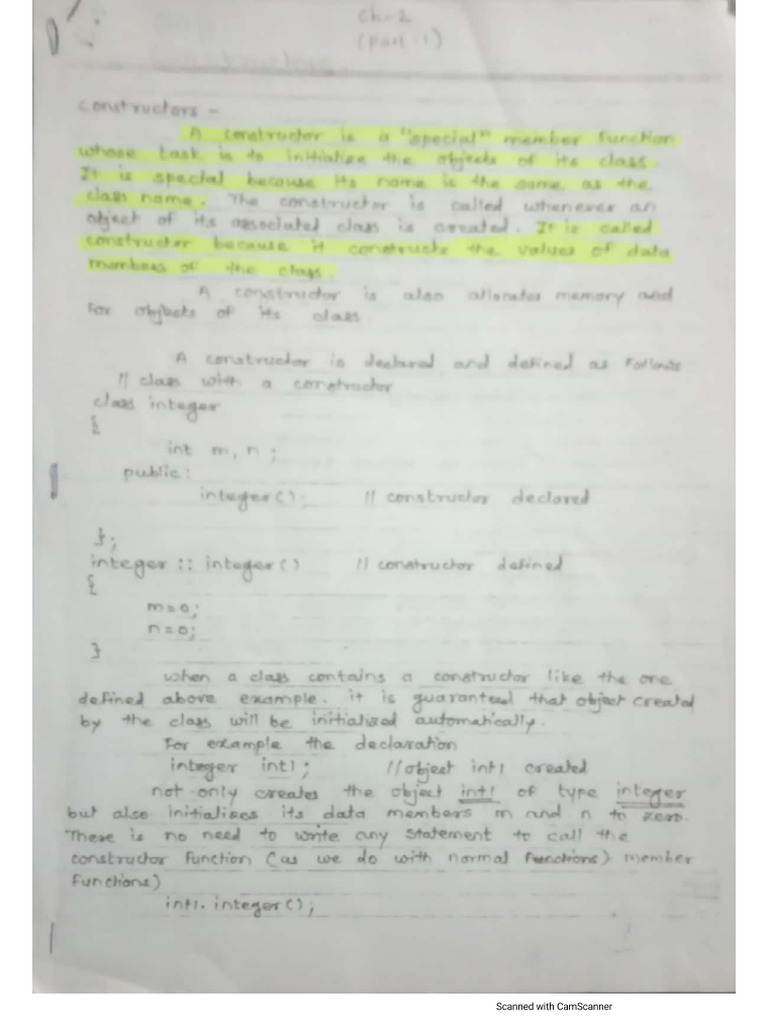 Ch-2
(Part-1)
Constructors -
A constructor is a "special" member function
whose task is to initialize the objects of its class.
It is special because its name is the same as the
class name. The constructor is called whenever an
object of its associated class is created. It is called
constructor because it constructs the values of data
members of the class.
A constructor is also allocates memory and
for objects of its class
A constructor is declared and defined as follows
// class with a constructor
class integer
{
int m, n ;
public:
integer(); // constructor declared
};
integer :: integer() // constructor defined
{
m=0;
n=0;
}
when a class contains a constructor like the one
defined above example. it is guaranteed that object created
by the class will be initialized automatically.
For example the declaration
integer int1 ; //object int1 created
not only creates the object int1 of type integer
but also initialises its data members m and n to zero.
There is no need to write any statement to call the
constructor function (as we do with normal functions) member
functions)
int1. integer();
Scanned with CamScanner